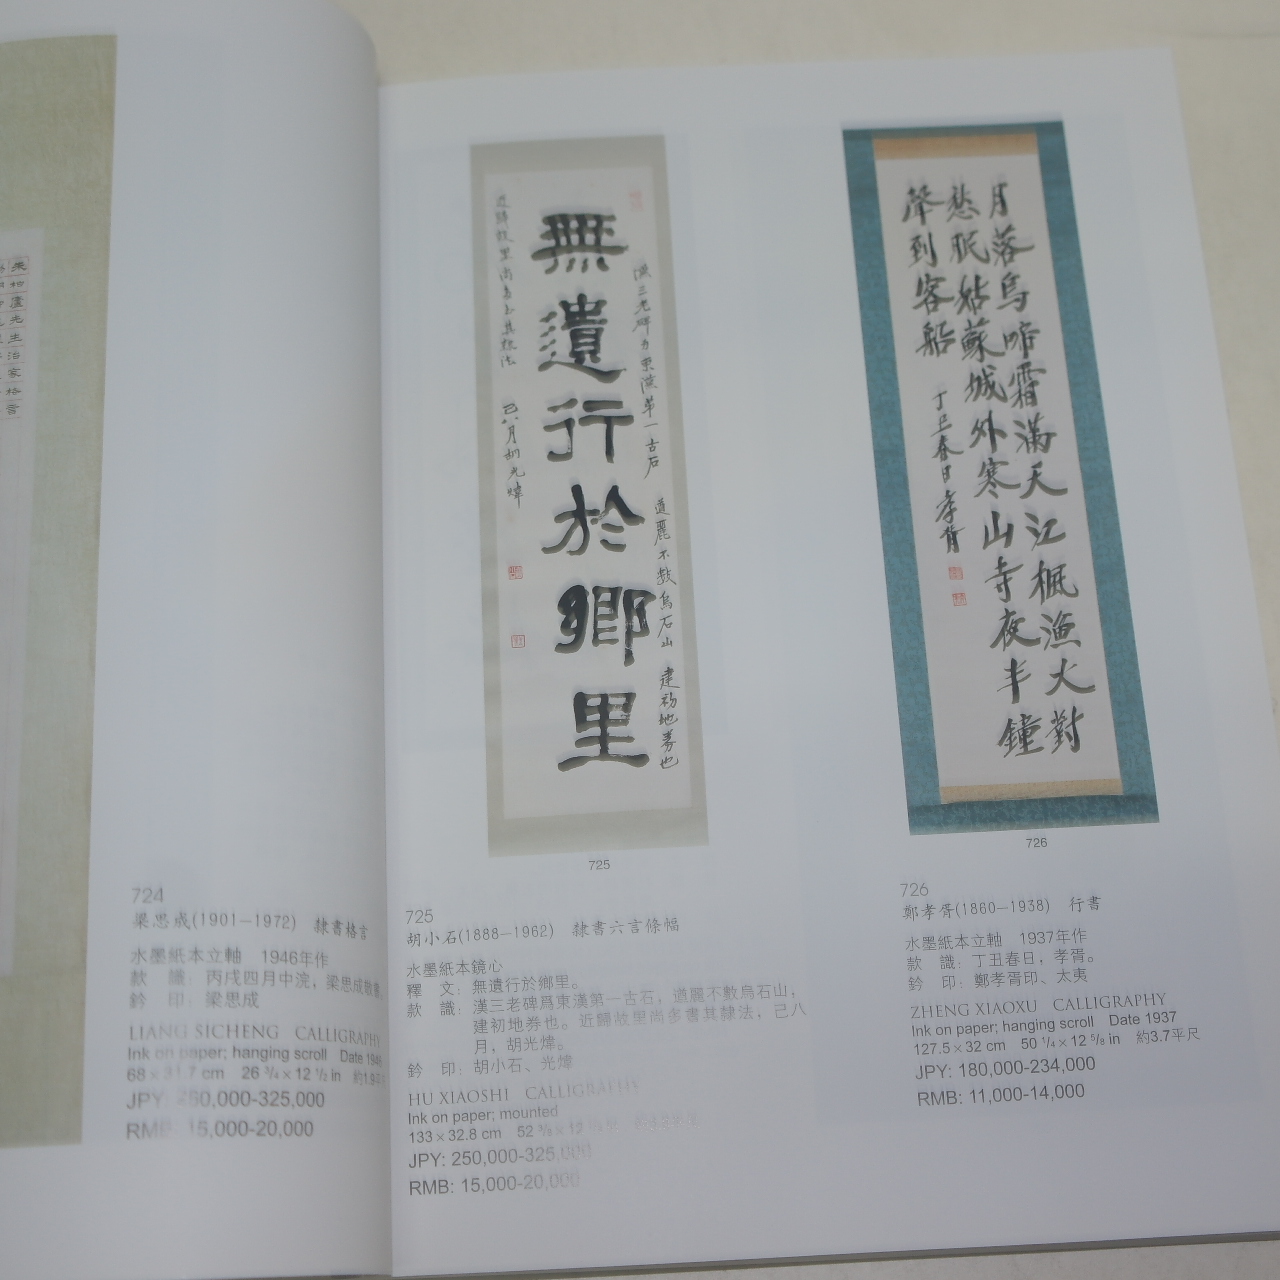 朱柏廬先生治家格言
724
梁思成(1901—1972) 隸書格言
水墨紙本立軸 1946年作
款 識：丙戌四月中浣，梁思成敬書
鈐 印：梁思成
LIANG SICHENG CALLIGRAPHY
Ink on paper; hanging scroll Date 1946
cm 26 3/4 × 12 1/2 in
JPY: 325,000
RMB: 15,000-20,000
無遺行於鄉里
漢三老碑為東漢第一古石 遒麗不數烏石山 建初地券也
近歸故里尚多書其隸法 己八月胡光煒
725
725
胡小石(1888—1962) 隸書六言條幅
水墨紙本鏡心
釋 文：無遺行於鄉里。
款 識：漢三老碑爲東漢第一古石，遒麗不數烏石山，
建初地券也。近歸故里尚多書其隸法，己八
月，胡光煒。
鈐 印：胡小石、光煒
HU XIAOSHI CALLIGRAPHY
Ink on paper; mounted
133 × 32.8 cm 52
JPY: 250,000-325,000
RMB: 15,000-20,000
月落烏啼霜滿天江楓漁火對
愁眠姑蘇城外寒山寺夜半鐘
聲到客船 丁丑春日孝胥
726
726
鄭孝胥(1860—1938) 行書
水墨紙本立軸 1937年作
款 識：丁丑春日，孝胥。
鈐 印：鄭孝胥印、太夷
ZHENG XIAOXU CALLIGRAPHY
Ink on paper; hanging scroll Date 1937
127.5 × 32 cm 50 1/4 × 12 5/8 in 約3.7平尺
JPY: 180,000-234,000
RMB: 11,000-14,000